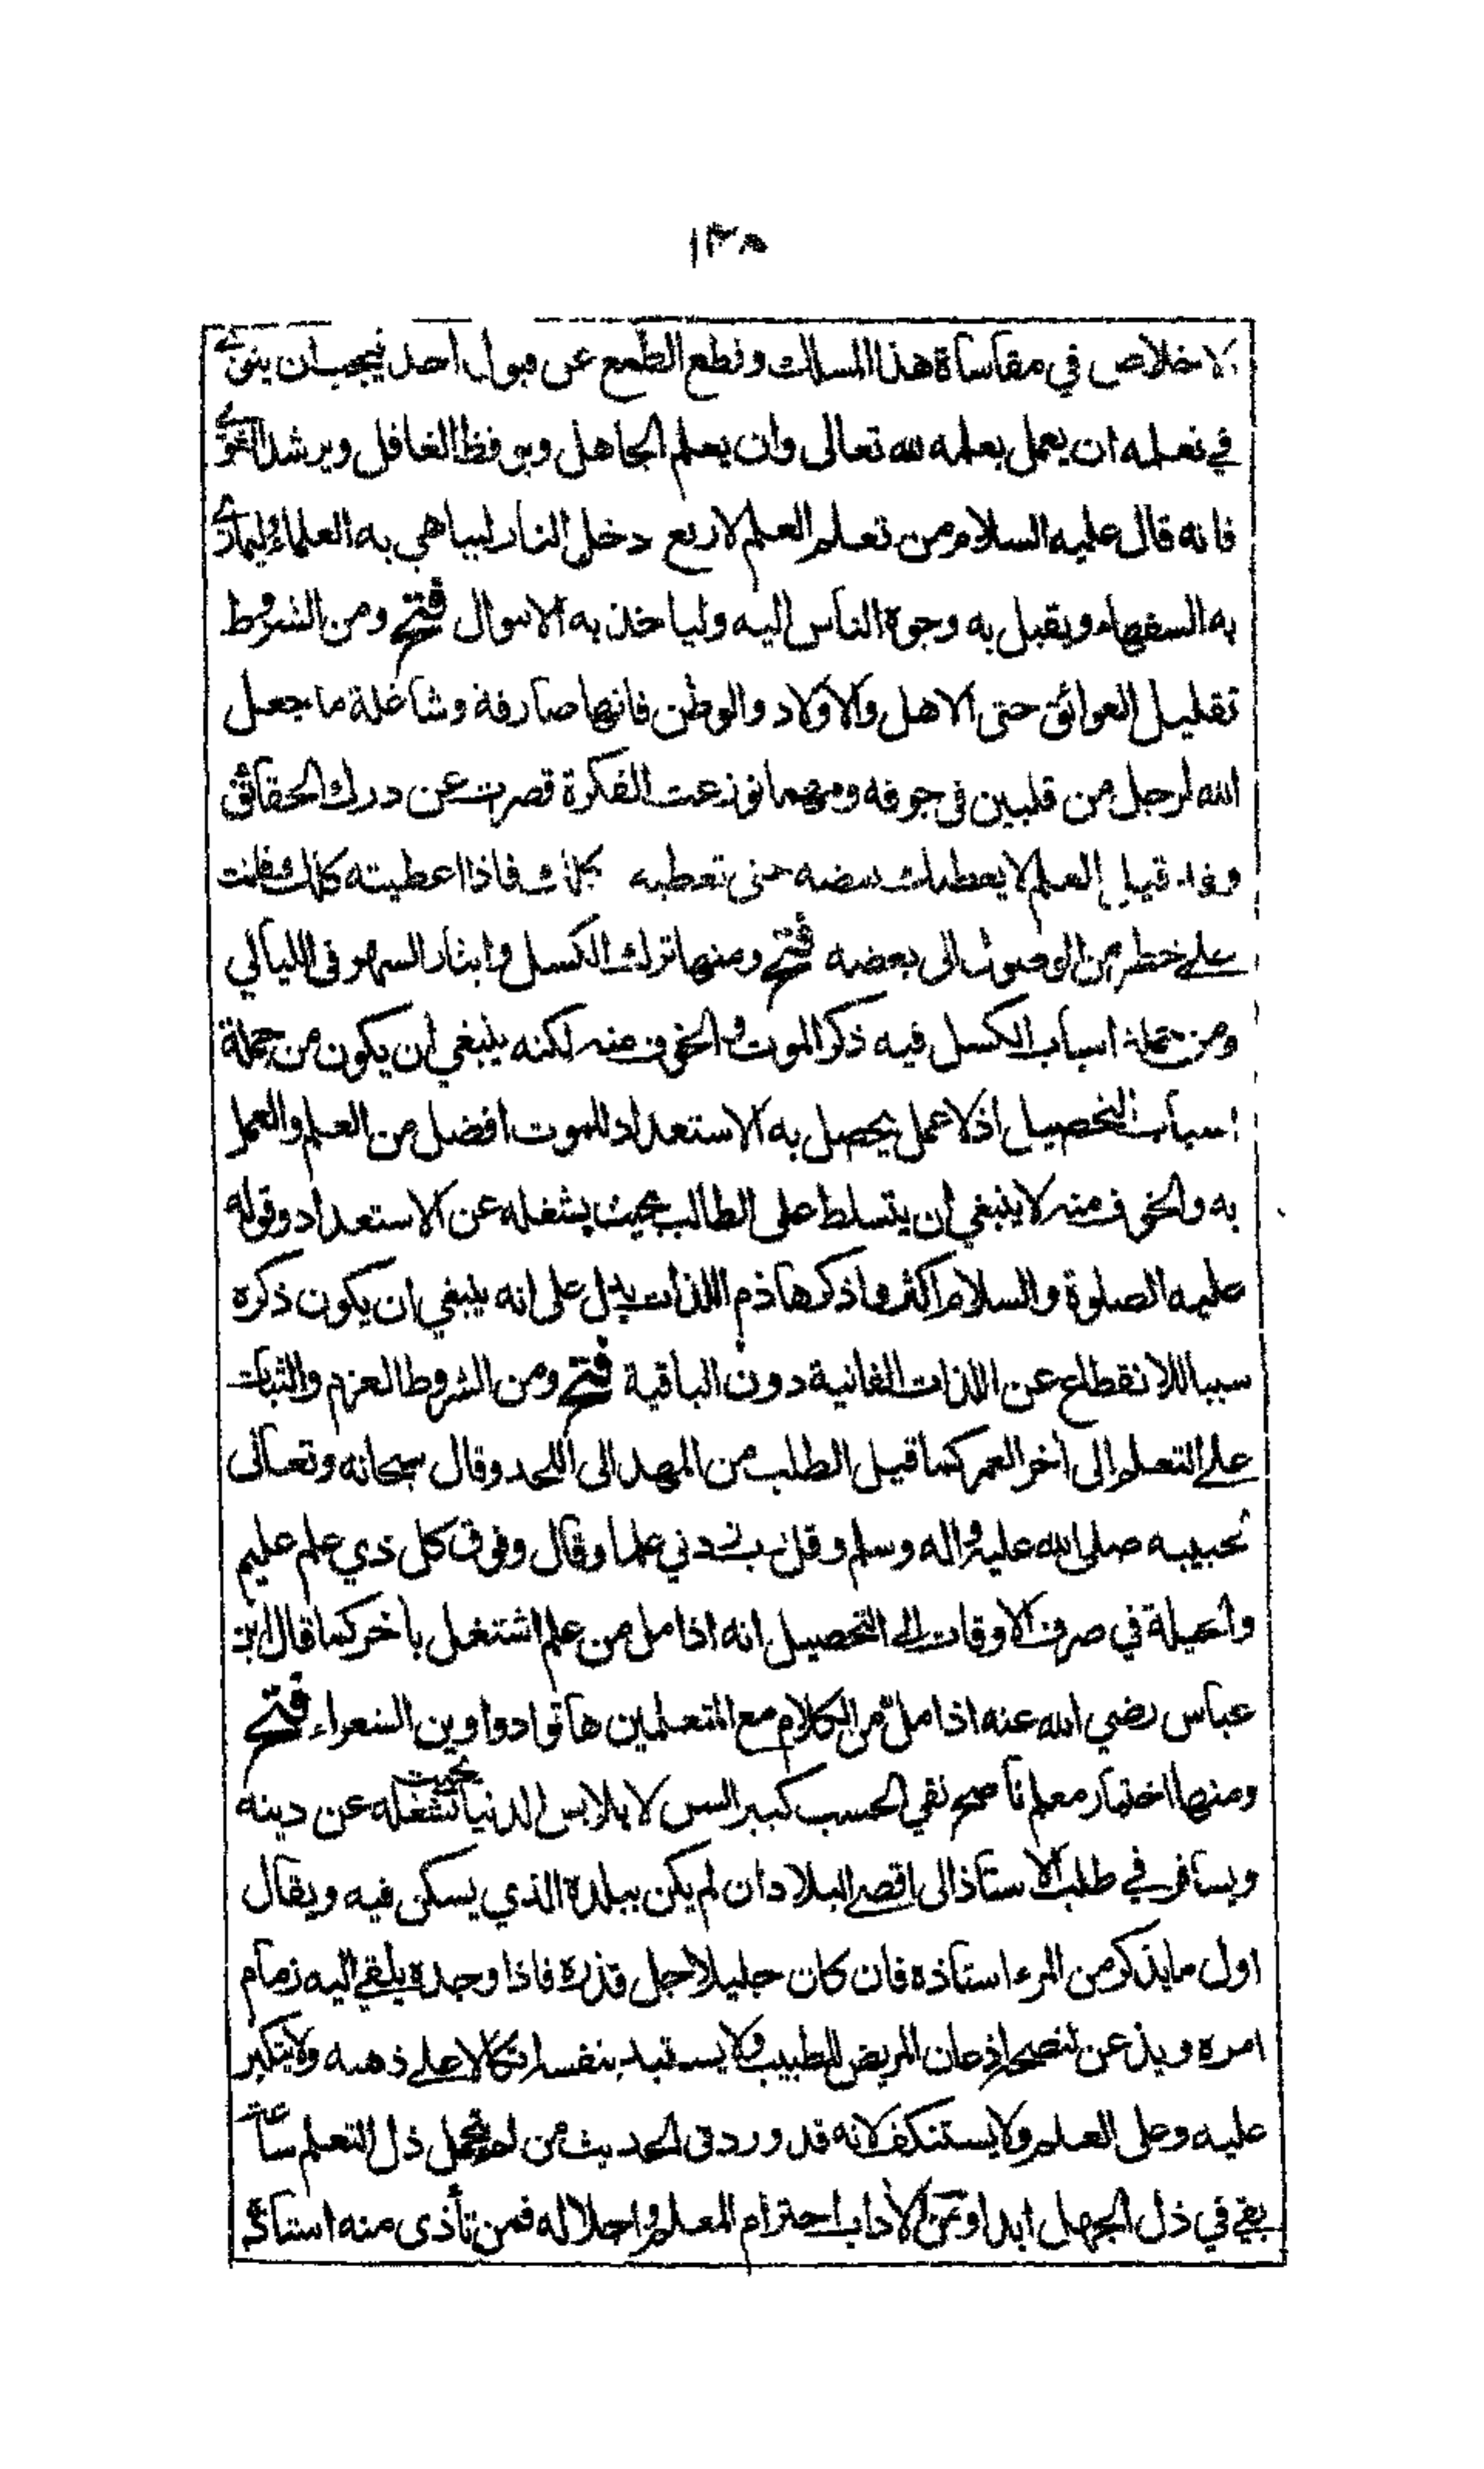 ١٢٨
الاخلاص في مقاساة هذا المسالك وقطع الطمع عن قبول احد فيجب ان ينوي
في تعلمه ان يعمل بعلمه لله تعالى وان يعلم الجاهل ويوقظ الغافل ويرشد الغوي
فانه قال عليه السلام من تعلم العلم لاربع دخل النار ليباهي به العلماء وليماري
به السفهاء ويقبل به وجوه الناس اليه ولياخذ به الاموال فتح ومن الشروط
تقليل العوائق حتى الاهل والاولاد والوطن فانها صارفة وشاغلة ما جعل
الله لرجل من قلبين في جوفه ومهما توزعت الفكرة قصرت عن درك الحقائق
وقد قيل العلم لا يعطيك بعضه حتى تعطيه كلك فاذا اعطيته كلك فانت
على خطر من الوصول الى بعضه فتح ومنها ترك الكسل وايثار السهر في الليالي
ومن جملة اسباب الكسل فيه ذكر الموت والخوف منه لكنه ينبغي ان يكون من جملة
اسباب التحصيل اذ لا عمل يحصل به الاستعداد للموت افضل من العلم والعمل
به والخوف منه لا ينبغي ان يتسلط على الطالب بحيث يشغله عن الاستعداد وقوله
عليه الصلوة والسلام اكثروا ذكر هاذم اللذات يدل على انه ينبغي ان يكون ذكره
سببا للانقطاع عن اللذات الفانية دون الباقية فتح ومن الشروط العزم والثبات
على التعلم الى اخر العمر كما قيل الطلب من المهد الى اللحد وقال سبحانه وتعالى
لحبيبه صلى الله عليه واله وسلم وقل رب زدني علما وقال وفوق كل ذي علم عليم
والحيلة في صرف الاوقات الى التحصيل انه اذا مل من علم اشتغل باخر كما قال ابن
عباس رضي الله عنه اذا مل من الكلام مع المتعلمين هاتوا دواوين الشعراء فتح
ومنها اختيار معلم ناصح نقي الحسب كبير السن لا يلابس الدنيا بحيث تشغله عن دينه
ويسافر في طلب الاستاذ الى اقصى البلاد ان لم يكن ببلده الذي يسكن فيه ويقال
اول ما يذكر من المرء استاذه فان كان جليلا جل قدره فاذا وجده يلقي اليه زمام
امره ويذعن لنصحه اذعان المريض للطبيب ولا يستبد بنفسه اتكالا على ذهنه ولا يتكبر
عليه وعلى العلم ولا يستنكف لانه قد ورد في الحديث من لم يتحمل ذل التعلم ساعة
بقي في ذل الجهل ابدا ومن الاداب احترام المعلم واجلاله فمن تأذى منه استاذه